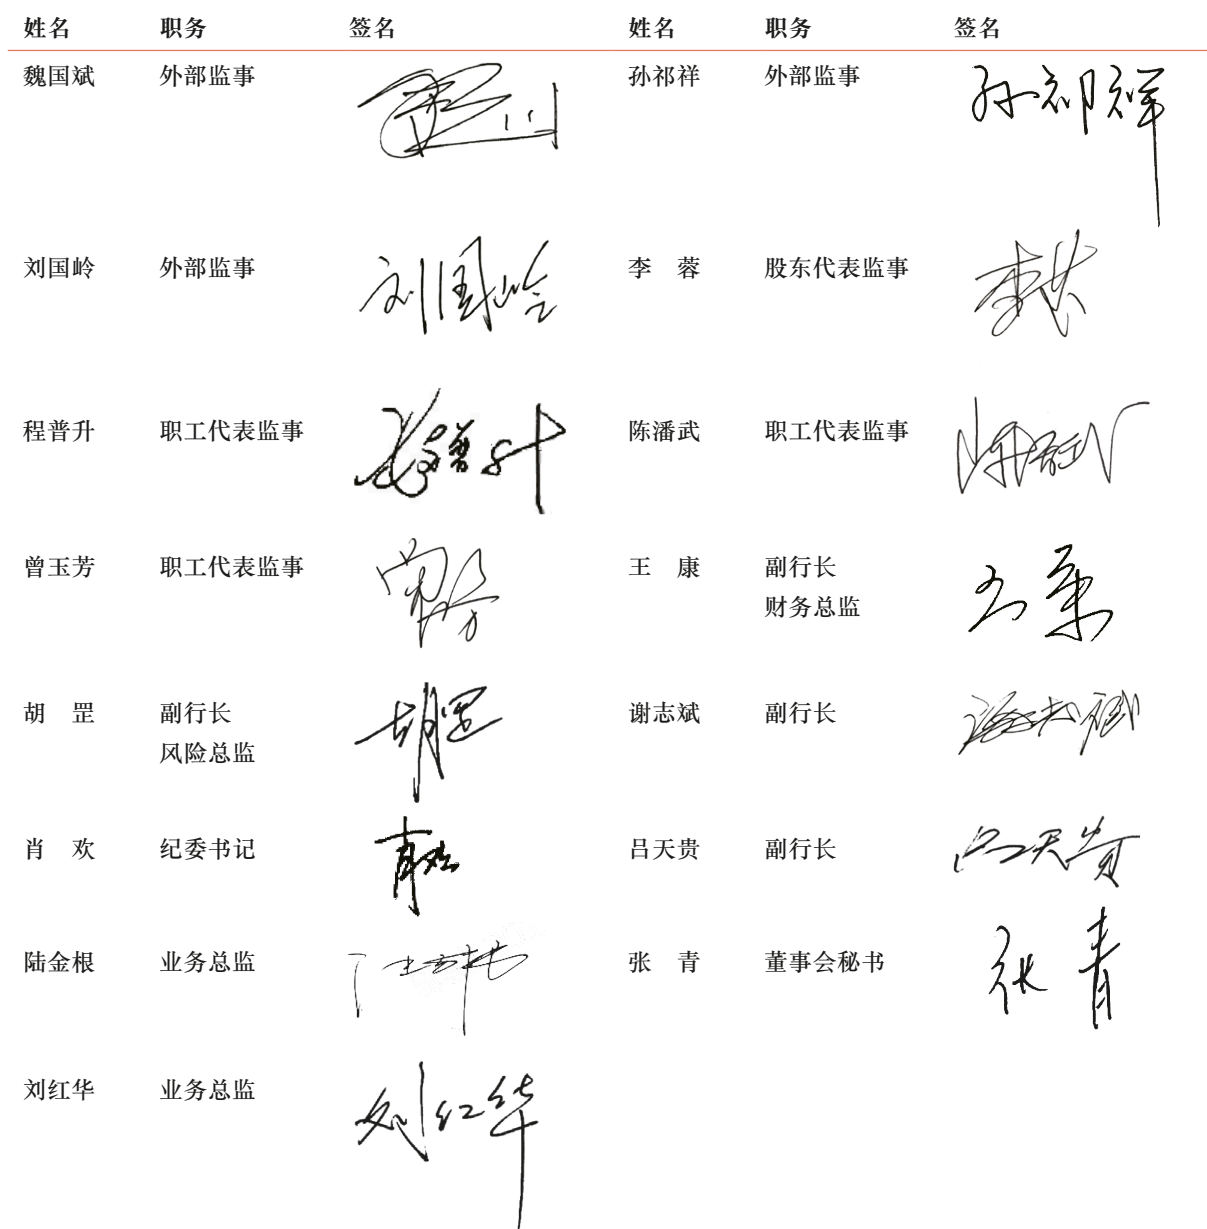 姓名 职务 签名 姓名 职务 签名
魏国斌 外部监事 孙祁祥 外部监事 孙祁祥
刘国岭 外部监事 刘国岭 李 蓉 股东代表监事
程普升 职工代表监事 程普升 陈潘武 职工代表监事
曾玉芳 职工代表监事 王 康 副行长 王康
财务总监
胡 罡 副行长 胡罡 谢志斌 副行长 谢志斌
风险总监
肖 欢 纪委书记 肖欢 吕天贵 副行长 吕天贵
陆金根 业务总监 张 青 董事会秘书 张青
刘红华 业务总监 刘红华